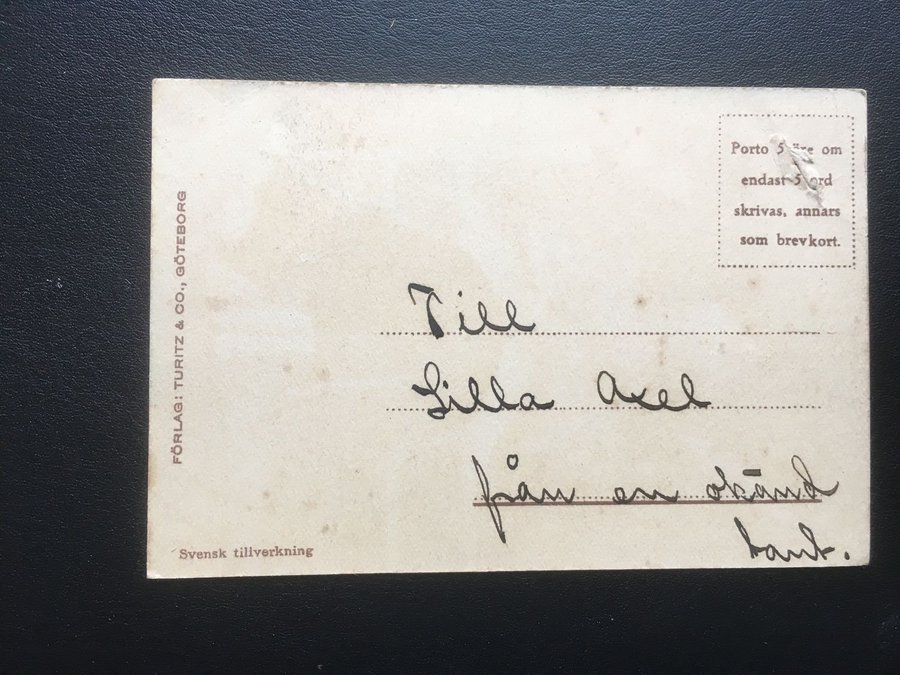 Porto 5 öre om
endast 5 ord
skrivas, annars
som brevkort.
Till
Lilla Axel
från en okänd
tant.
FÖRLAG: TURITZ & CO., GÖTEBORG
Svensk tillverkning